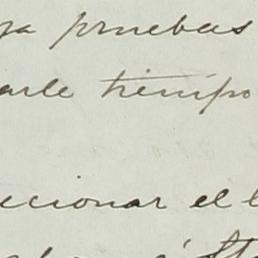 ya pruebas
arle tiempo
ecionar el l